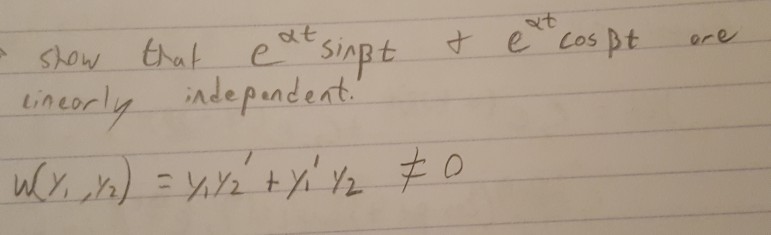 show that e^αt sinβt + e^αt cosβt are
linearly independent.
W(y₁, y₂) = y₁y₂' + y₁'y₂ ≠ 0